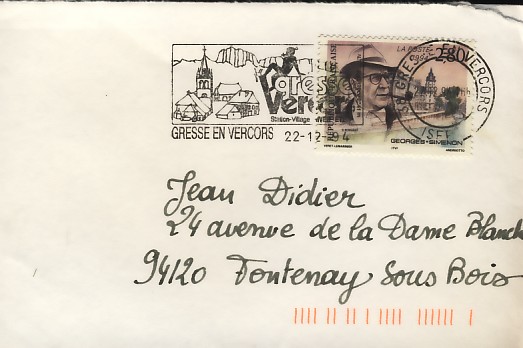 Gresse en
Vercors
Station-Village
GRESSE EN VERCORS
22-12-94
LA POSTE
2,80
RÉPUBLIQUE FRANÇAISE
GEORGES SIMENON
GRESSE EN VERCORS
ISERE
Jean Didier
24 avenue de la Dame Blanche
94120 Fontenay Sous Bois